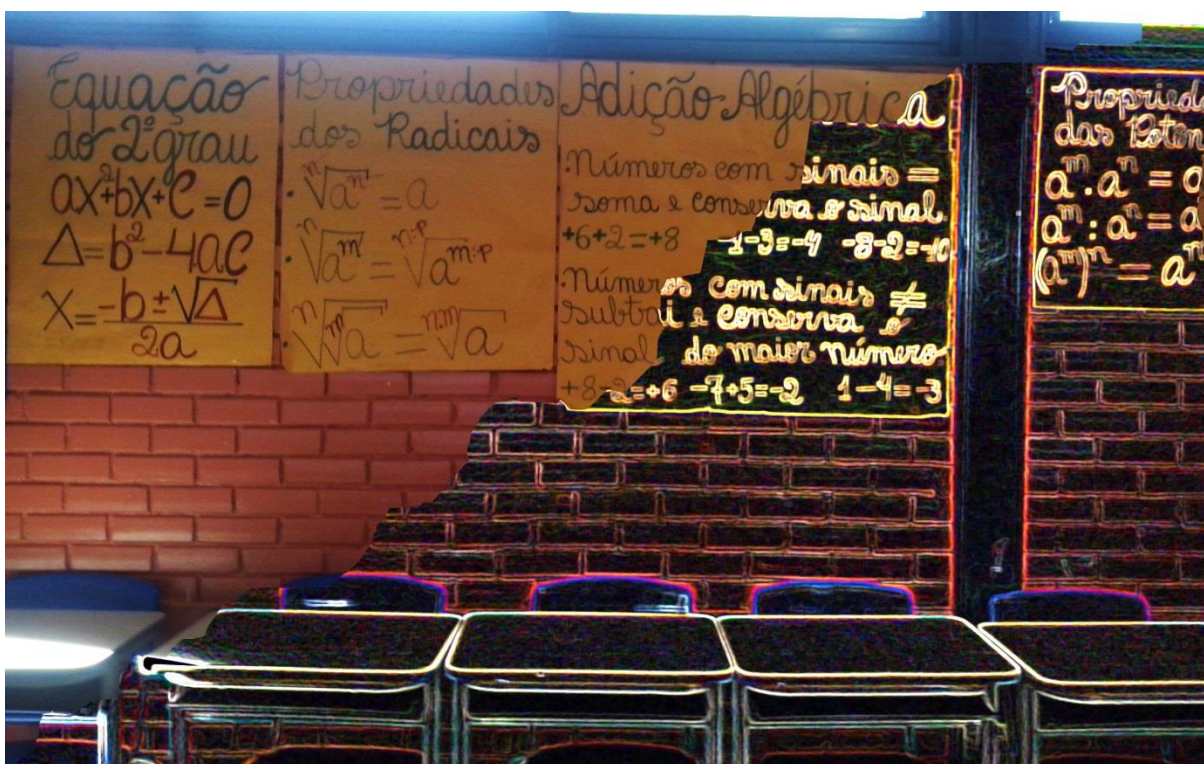 Equação
do 2º grau
ax²+bx+c=0
Δ=b²-4ac
x=-b±√Δ/2a
Propriedades
dos Radicais
• ⁿ√aⁿ = a
• ⁿ√aᵐ = ⁿ:ᵖ√aᵐ:ᵖ
• ⁿ√ᵐ√a = ⁿ·ᵐ√a
Adição Algébrica
•Números com sinais =
soma e conserva o sinal.
+6+2=+8 -1-3=-4 -8-2=-10
•Números com sinais ≠
subtrai e conserva o
sinal do maior número
+8-2=+6 -7+5=-2 1-4=-3
das
aᵐ.aⁿ = a
aᵐ:aⁿ = a
(aᵐ)ⁿ = aⁿ